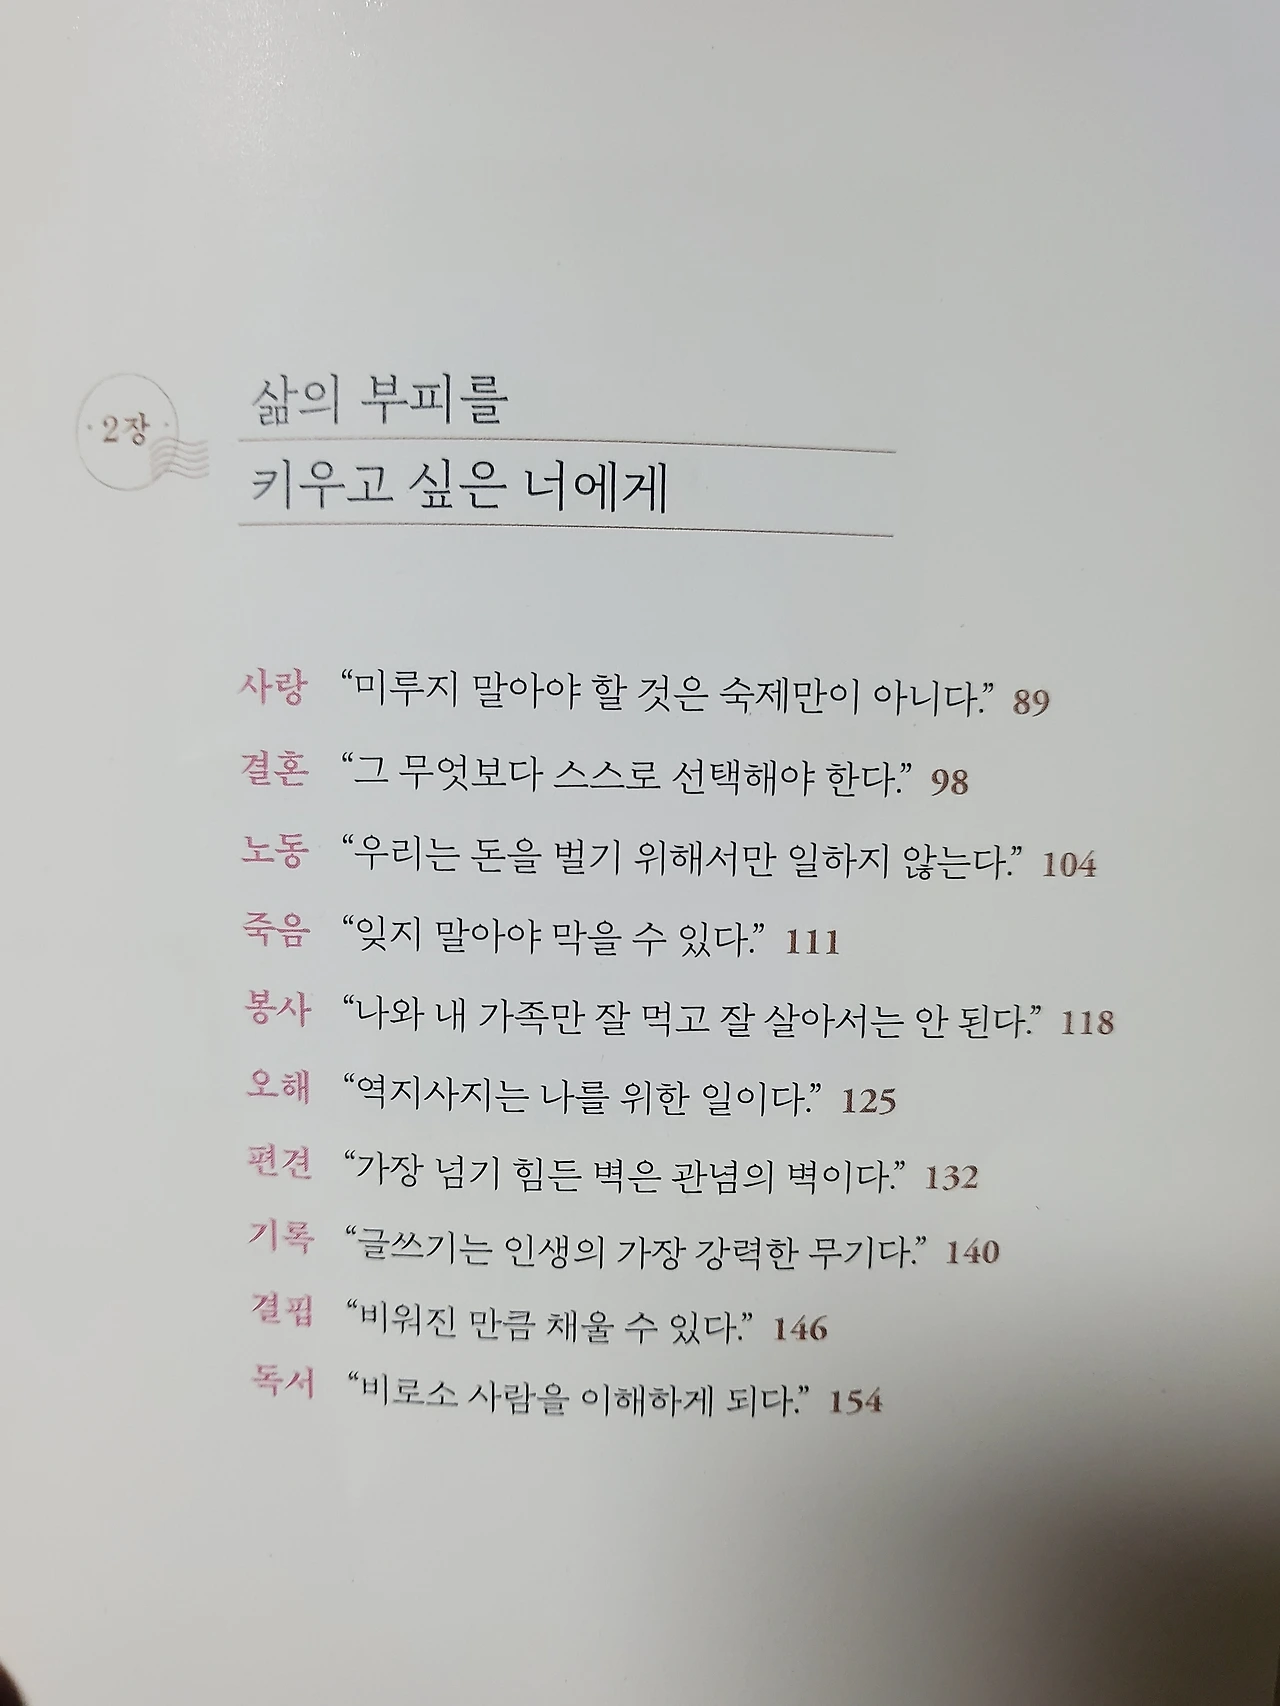 2장
삶의 부피를
키우고 싶은 너에게
사랑 “미루지 말아야 할 것은 숙제만이 아니다.” 89
결혼 “그 무엇보다 스스로 선택해야 한다.” 98
노동 “우리는 돈을 벌기 위해서만 일하지 않는다.” 104
죽음 “잊지 말아야 막을 수 있다.” 111
봉사 “나와 내 가족만 잘 먹고 잘 살아서는 안 된다.” 118
오해 “역지사지는 나를 위한 일이다.” 125
편견 “가장 넘기 힘든 벽은 관념의 벽이다.” 132
기록 “글쓰기는 인생의 가장 강력한 무기다.” 140
결핍 “비워진 만큼 채울 수 있다.” 146
독서 “비로소 사람을 이해하게 되다.” 154